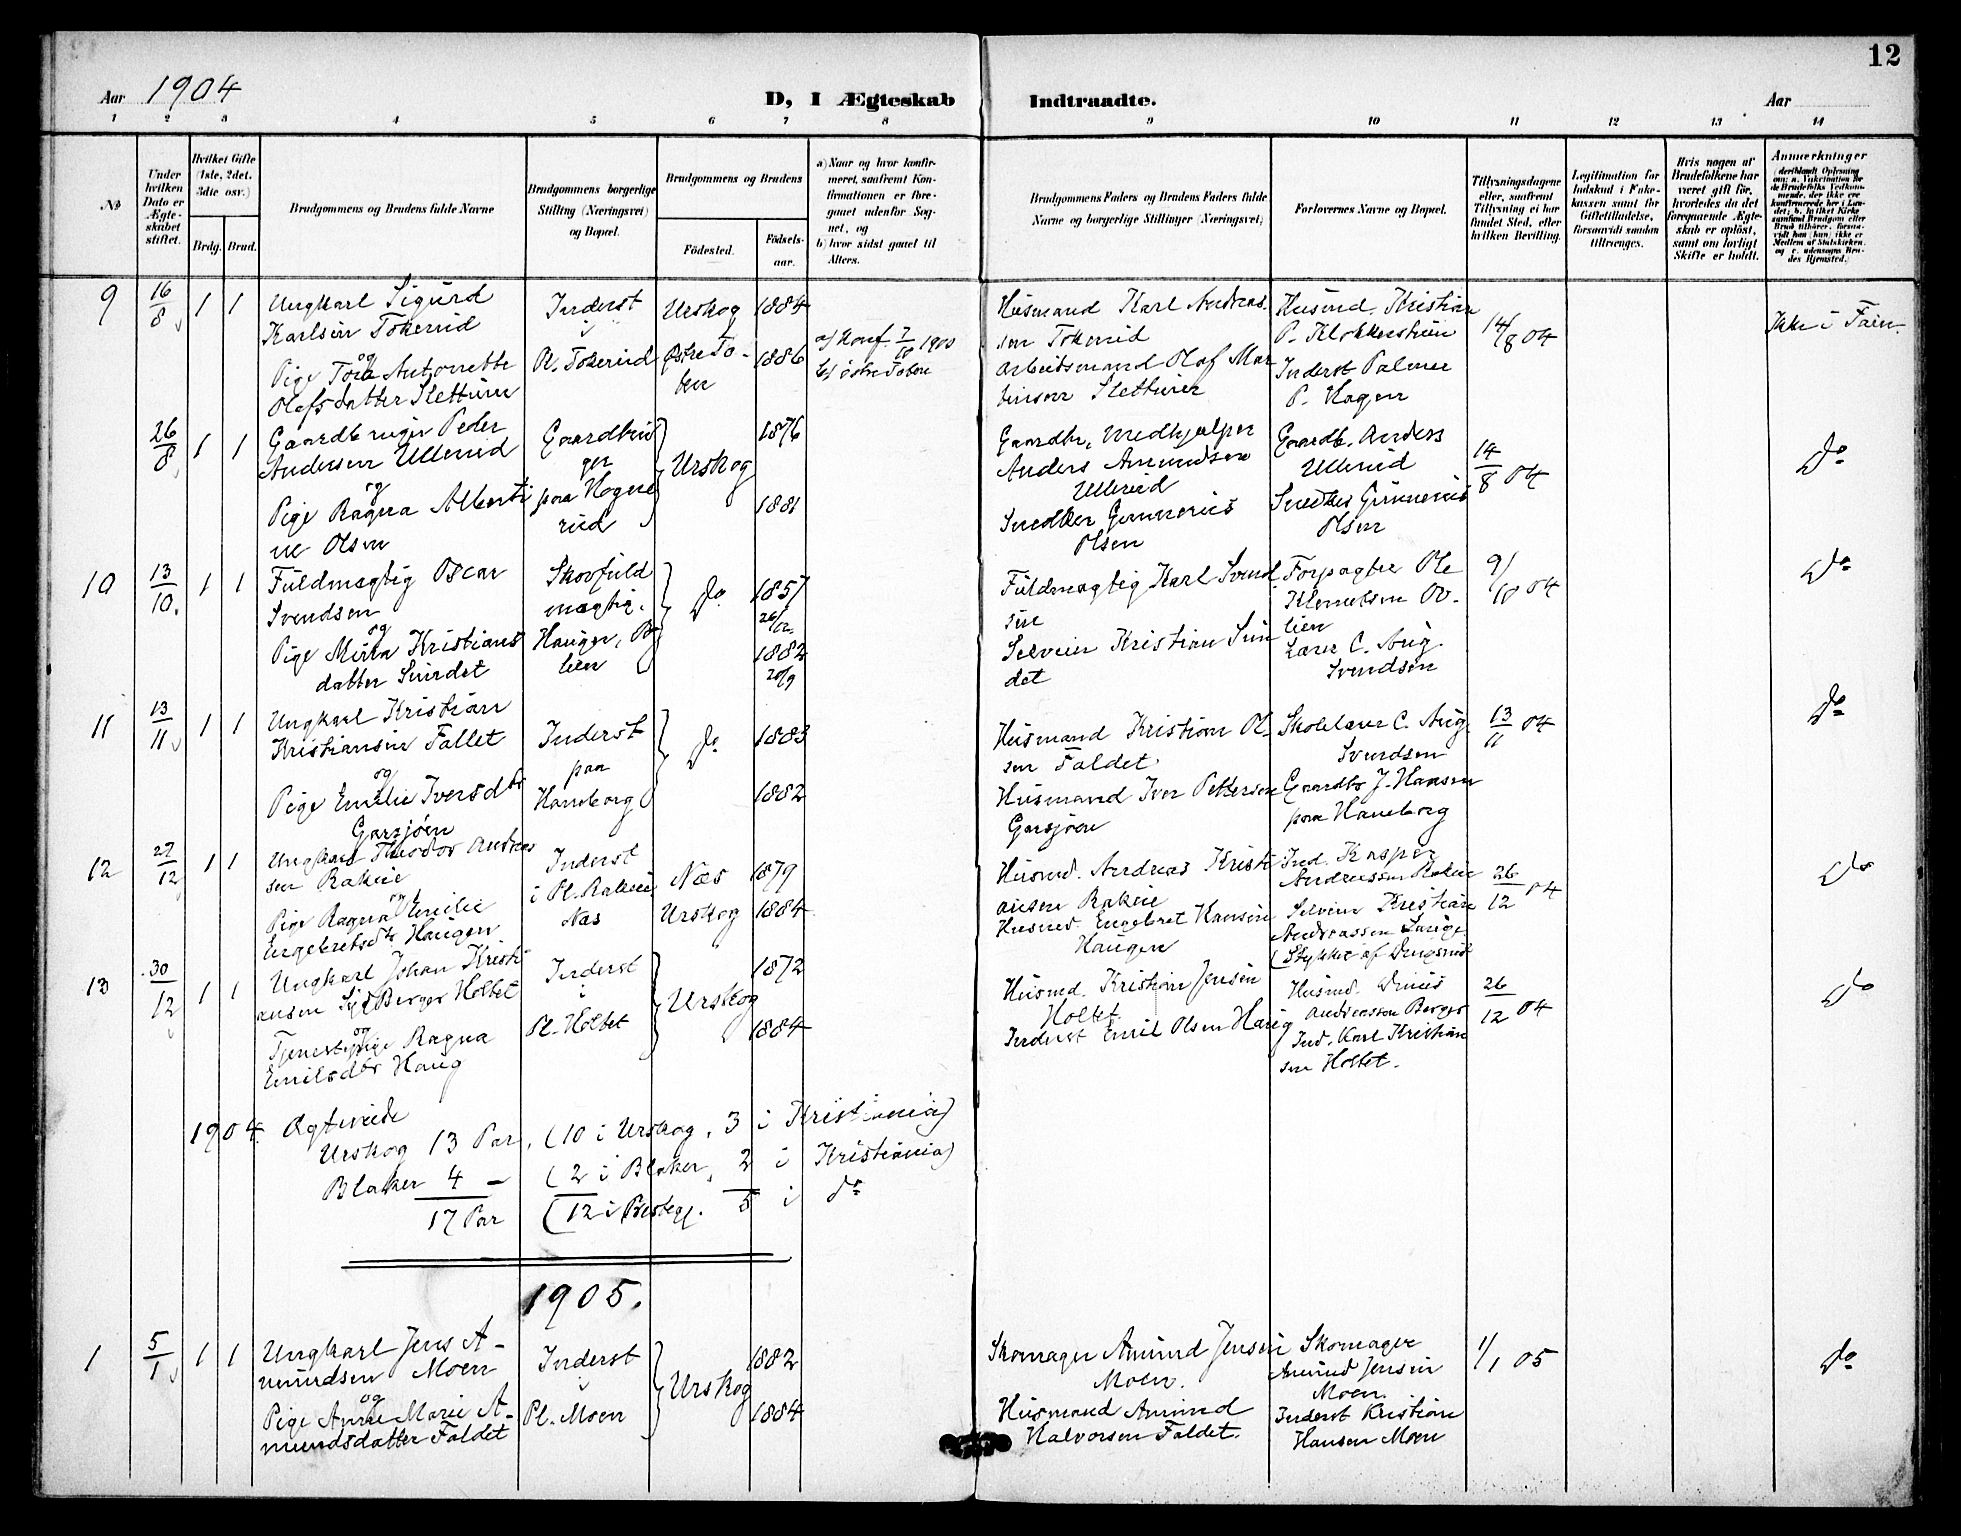 12
Aar 1904
D, I Ægteskab Indtraadte.
Aar
1 2 3 4 5 6 7 8 9 10 11 12 13 14
No
Under hvilken Dato er Ægteskabet stiftet.
Hvilket Gifte (1ste, 2det, 3die osv.)
Brdg. Brud.
Brudgommens og Brudens fulde Navne
Brudgommens borgerlige Stilling (Næringsvei) og Bopæl.
Brudgommens og Brudens
Fødested. Fødsels-aar.
a) Naar og hvor konfirmeret, saafremt Konfirmationen er foregaaet udenfor Sognet, og
b) hvor sidst gaaet til Alters.
Brudgommens Faders og Brudens Faders fulde Navne og borgerlige Stillinger (Næringsvei)
Forlovernes Navne og Bopæl.
Tillysningsdagene eller, saafremt Tillysning ei har fundet Sted, efter hvilken Bevilling.
Legitimation for Indskud i Enkekassen samt for Giftetilladelse, forsaavidt saadan tiltrænges.
Hvis nogen af Brudefolkene har været gift før, hvorledes da det foregaaende Ægteskab er opløst, samt om lovligt Skifte er holdt.
Anmerkninger
9 16/8 1 1 Ungkarl Sigurd Karlsen Tokerud
og
Pige Tora Antonette Olafsdatter Sletturen
Inderst i Pl. Tokerud
Urskog 1884
Østre Toten 1886
a) Konf. 7/10 1900
b) i østre Toten
Husmand Karl Andreassen Tokerud
Arbeidsmand Olaf Martinsen Sletturen
Husmd. Kristian P. Klokkerstuen
Inderst Palmer P. Hagen
14/8 04
Ikke i Fam.
26/8 1 1 Gaardbruger Peder Andersen Ullerud
og
Pige Ragna Albertine Olsen
Gaardbruger paa Hogнerud
Urskog 1876
1881
Gaardbr. medhjælper Anders Amundsen Ullerud
Snedker Gunnerius Olsen
Gaardb. Anders Ullerud
Snedker Gunnerius Olsen
14/8 04
Do
10 13/10. 1 1 Fuldmægtig Oscar Svendsen
og
Pige Kristiansdatter Sundet
Skovfuldmægtig. Haugen,
Do 1857 26/12.
1882 20/9
Fuldmægtig Karl Svendsen
Selveier Kristian Sundet
Forpagter Ole Klemetsen
Lærer C. Aug. Svendsen
9/10 04
Do
11 13/11 1 1 Ungkarl Kristian Kristiansen Fallet
og
Pige Emilie Iversdtr Garsjøen
Inderst paa Haneborg
Do 1883
1882
Husmand Kristian Olsen Faldet.
Husmand Iver Pettersen Garsjøen
Skolelærer C. Aug. Svendsen
Gaardbr J. Hansen paa Haneborg
13/11 04
Do
12 27/12 1 1 Ungkarl Theodor Andreassen Rakeie
og
Pige Ragna Emilie Engebretsdtr Haugen
Inderst i Pl. Rakeie Næs
Næs 1879
Urskog 1884
Husmd. Andreas Kristiansen Rakeie
Husmd. Engebret Hansen Haugen
Ind. Kasper Andreassen Rakeie
Selveier Kristian Andreassen
(Stykke af
26/12 04
Do
13 30/12 1 1 Ungkarl Johan Kristiansen Berger Holtet
og
Tjenestepige Ragna Emilsdtr Haug
Inderst i Pl. Holtet
Urskog 1872
1884
Husmd. Kristian Jensen Holtet
Inderst Emil Olsen Haug
Husmd. Andreassen Berger
Ind. Karl Kristiansen Holtet.
26/12 04
Do
1904. Ægteviede
Urskog 13 Par, (10 i Urskog, 3 i Kristiania)
Blaker 4 – (2 i Blaker, 2 i Kristiania)
17 Par (12 i Prestegj. 5 i do
1905.
1 5/1 1 1 Ungkarl Jens Amundsen Moen
og
Pige Anne Marie Amundsdatter Faldet
Inderst i Pl. Moen
Urskog 1882
1884
Skomager Amund Jensen Moen.
Husmand Amund Halvorsen Faldet.
Skomager Amund Jensen Moen.
Inderst Kristian Hansen Moen
1/1 05
Do